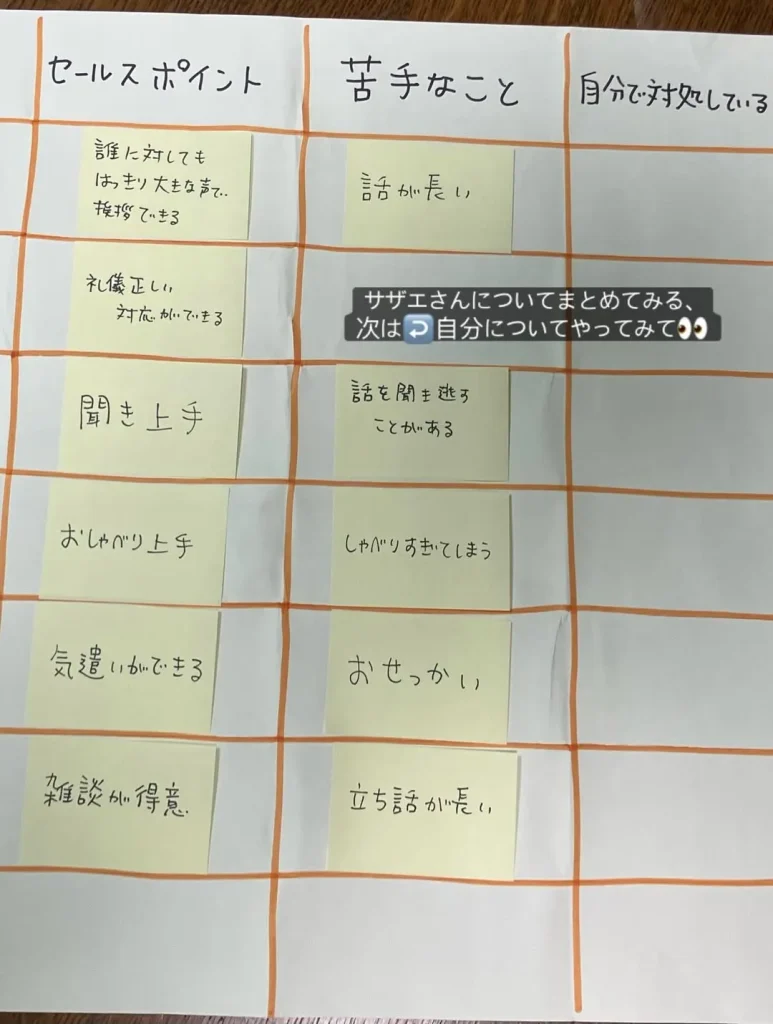 セールスポイント
苦手なこと
自分で対処している
誰に対しても
はっきり大きな声で
挨拶できる
話が長い
礼儀正しい
対応ができる
サザエさんについてまとめてみる、
次は↩️自分についてやってみて👀
聞き上手
話を聞き逃す
ことがある
おしゃべり上手
しゃべりすぎてしまう
気遣いができる
おせっかい
雑談が得意
立ち話が長い